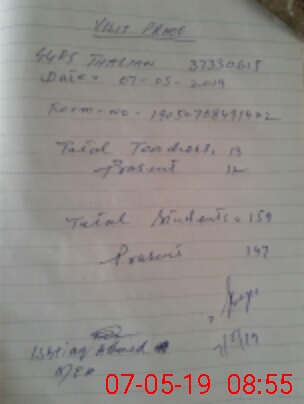 VISIT PROOF
GGES THALIAN 37330615
Date= 07-05-2019
Total Teachers. 13
Present 12
Total Students = 159
Present 147
Ishtiaq Ahmed
MEA
07-05-19 08:55